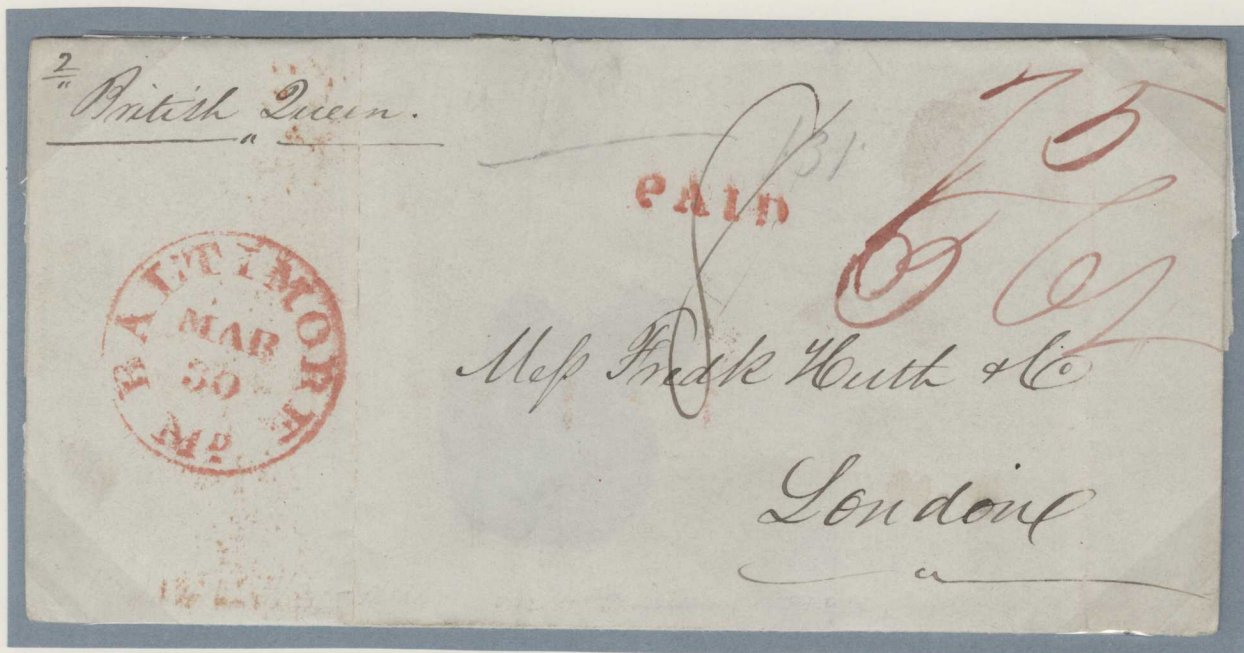 2
"
British Queen.
"
131
PAID
75
62
8
BALTIMORE
MAR
30
MD
Mess Fredk Huth & Co
London